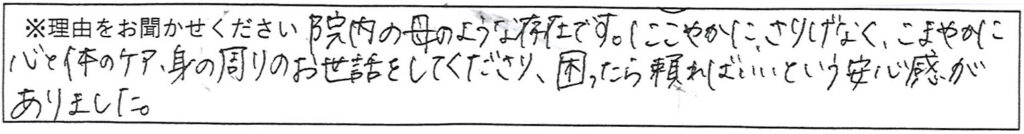 ※理由をお聞かせください 院内の母のような存在です。にこやかに、さりげなく、こまやかに
心と体のケア、身の周りのお世話をしてくださり、困ったら頼ればいいという安心感が
ありました。